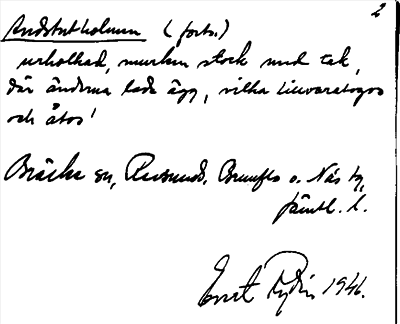 2
Andstutholmen (forts.)
urholkad, murken stock med tak,
där änderna lade ägg, vilka tillvaratogos
och åtos!
Bräcke sn, Revsunds, Brunflo o. Näs tg,
Jämtl. l.
Ernst Rydin 1946.